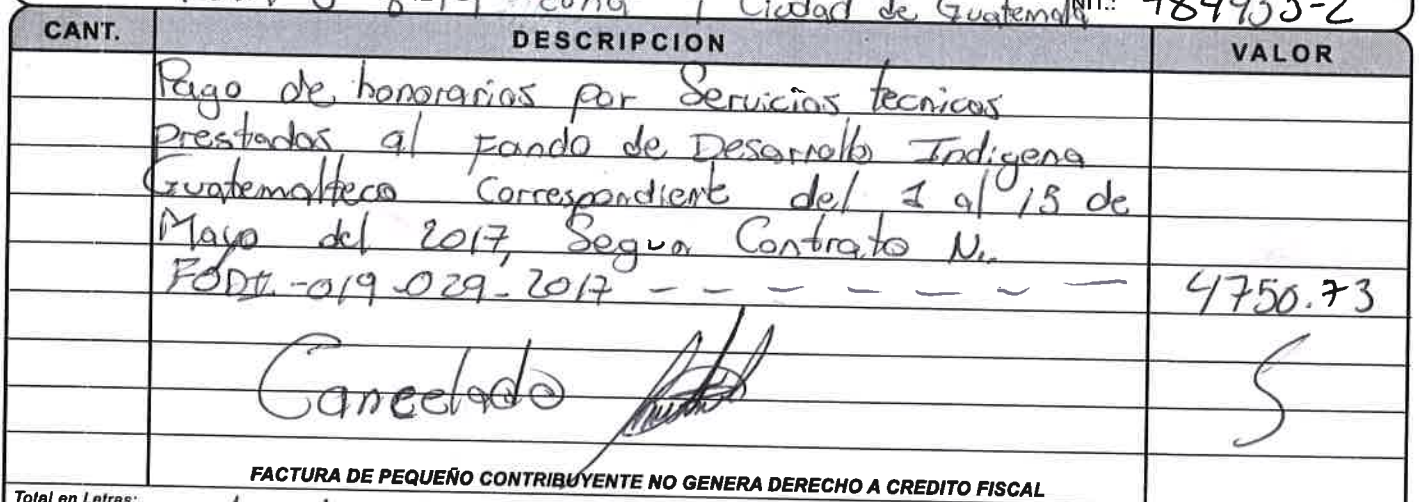 Ciudad de Guatemala NIT.:
CANT. DESCRIPCION VALOR
Pago de honorarios por Servicios tecnicos
prestados al Fondo de Desarrollo Indigena
Guatemalteco Correspondiente del 1 al 15 de
Mayo del 2017, Segun Contrato N..
FODI-019-029-2017 - - - - - - - - 4750.73
Cancelado
FACTURA DE PEQUEÑO CONTRIBUYENTE NO GENERA DERECHO A CREDITO FISCAL
Total en Letras: